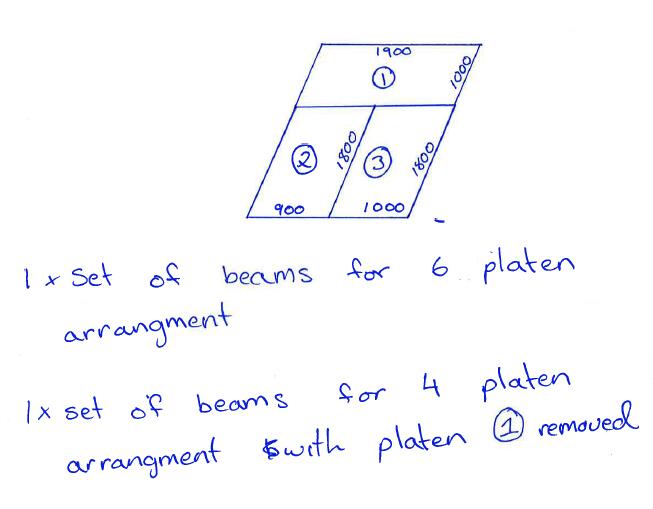 1900
1
1000
2
1800
3
1800
900
1000
1 x Set of beams for 6 platen
arrangment
1x set of beams for 4 platen
arrangment with platen 1 removed